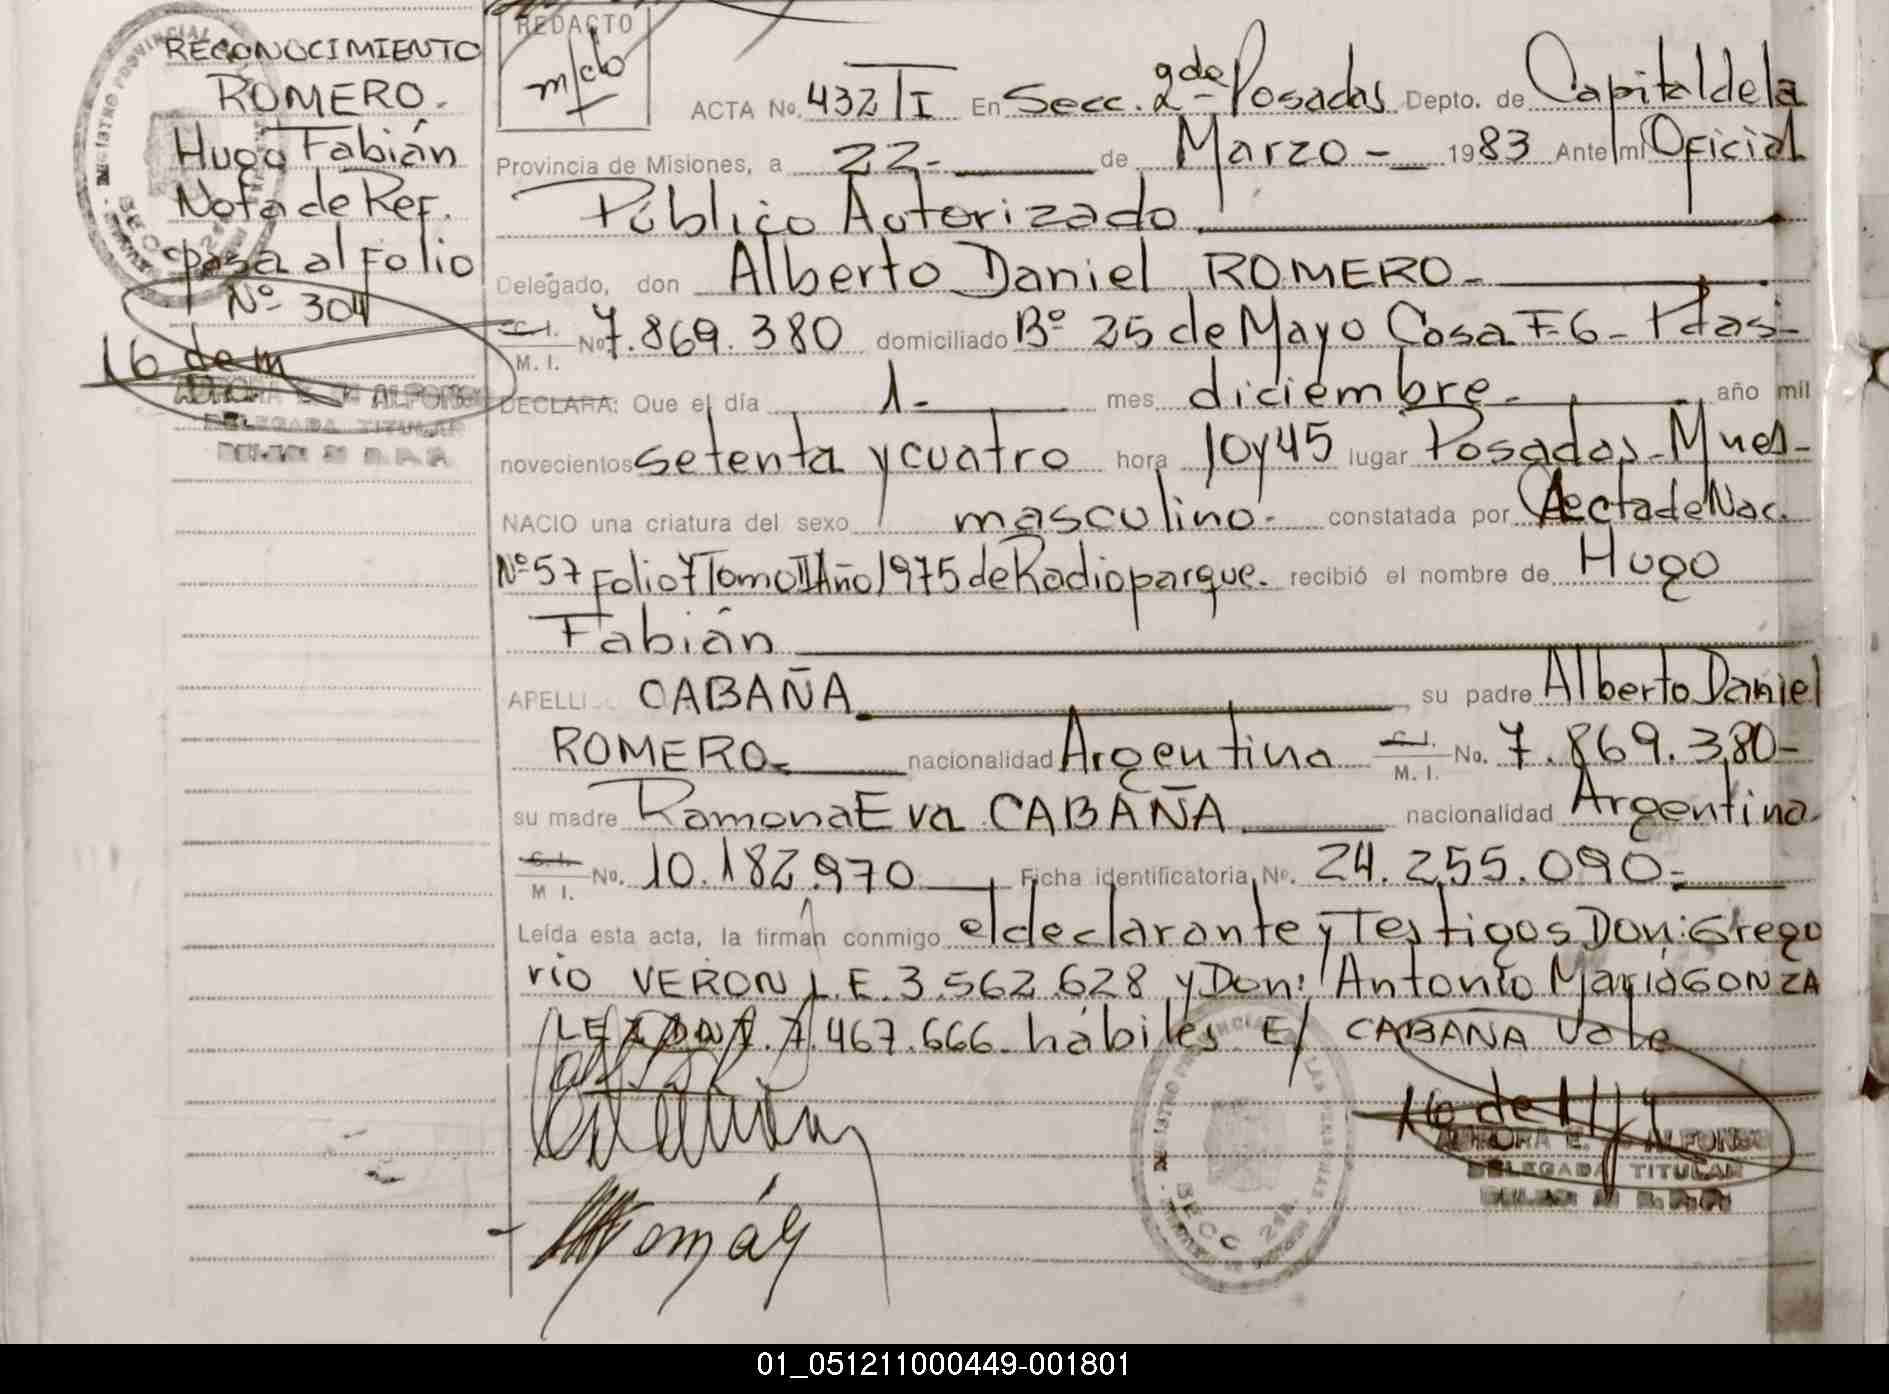 RECONOCIMIENTO
ROMERO.
Hugo Fabián
Nota de Ref.
pasa al Folio
Nº 304
16 de m
DELEGADA TITULAR
REDACTO
ACTA No. 432/I En Secc. 2da Posadas Depto. de Capital de la
Provincia de Misiones, a 22- de Marzo - 1983 Ante mí Oficial
Público Autorizado
Delegado, don Alberto Daniel ROMERO-
C.I. M.I. No 7.869.380 domiciliado Bº 25 de Mayo Casa F-6- Pdas-
DECLARA: Que el día 1- mes diciembre- año mil
novecientos setenta y cuatro hora 10y45 lugar Posadas-Mnes-
NACIO una criatura del sexo masculino- constatada por Acta de Nac.
Nº 57 Folio 7 Tomo II Año 1975 de Radioparque. recibió el nombre de Hugo
Fabián
APELLI CABAÑA su padre Alberto Daniel
ROMERO- nacionalidad Argentina C.I. M.I. No. 7.869.380-
su madre Ramona Eva CABAÑA nacionalidad Argentina
C.I. M I. No. 10.182.970 Ficha identificatoria No. 24.255.090-
Leída esta acta, la firmán conmigo el declarante y Testigos Don: Grego
rio VERON L.E. 3.562.628 y Don: Antonio María GONZA
LEZ DNI. 7.467.666. hábiles E/ CABAÑA Vale
SECC 2da.
AURORA E. ALFONSO
DELEGADA TITULAR
01_051211000449-001801